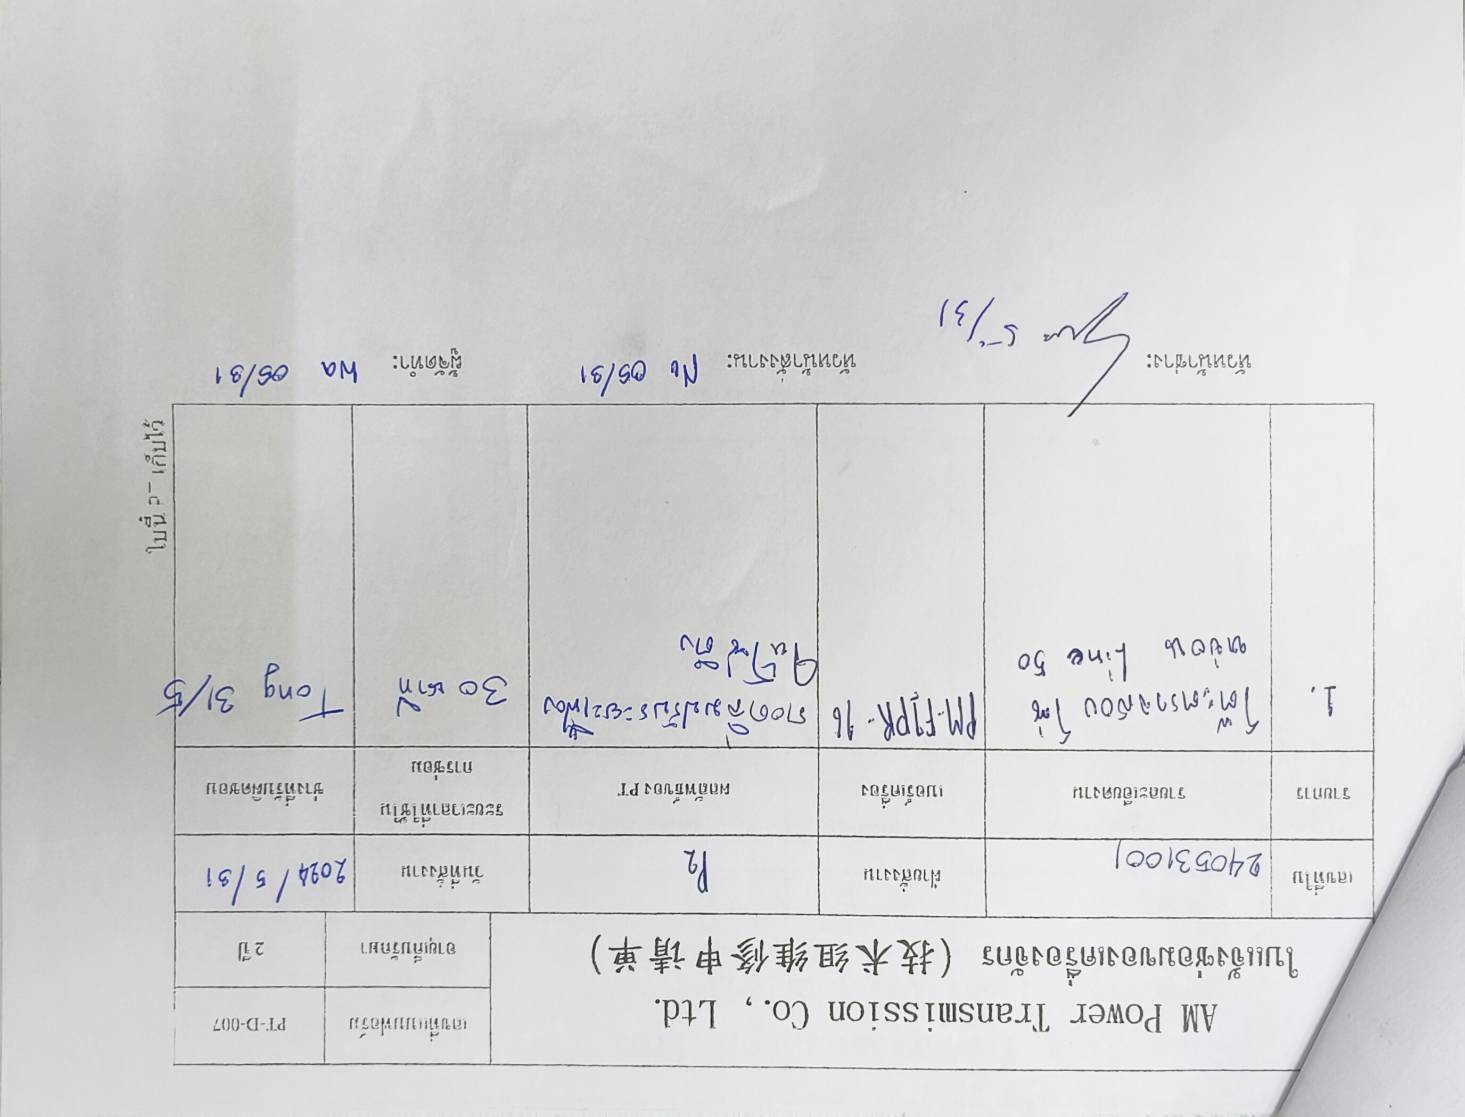 AM Power Transmission Co., Ltd.
ใบแจ้งซ่อมของเครื่องจักร (技术组维修申请单)
เลขที่แบบฟอร์ม PT-D-007
อายุเก็บรักษา 2 ปี
เลขที่ใบ 240531001 ฝ่ายสั่งงาน P2 วันที่สั่งงาน 2024/5/31
รายการ รายละเอียดงาน เบอร์เครื่อง ผลลัพธ์ของ PT ระยะเวลาที่ใช้ใน
การซ่อม ช่างที่รับผิดชอบ
1. โต๊ะตรวจสอบ โซ่ PM-F1PR-16 ถอดลิ่มปรับระยะเฟือง 30 นาที Tong 31/5
หย่อน Line 50 ให้โซ่ตึง
ใบนี้ PT เก็บไว้
หัวหน้าช่าง: 5/31 หัวหน้าสั่งงาน: 05/31 ผู้จัดทำ: Wa 05/31